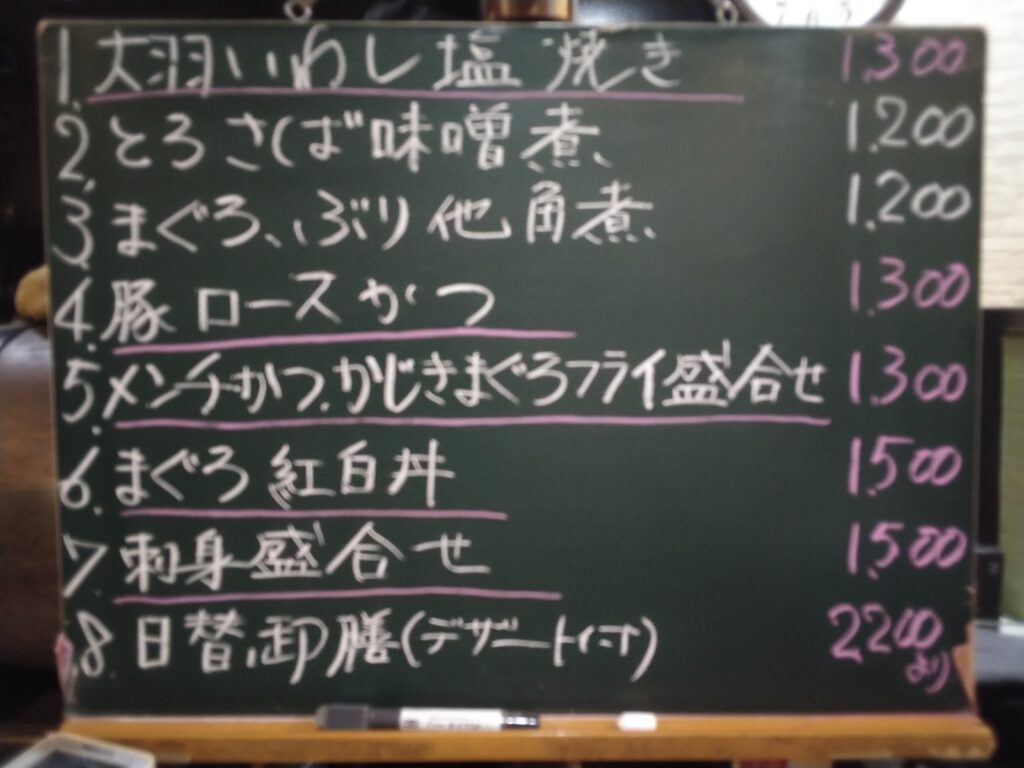 765
1. 大羽いわし塩焼き 1.300
2. とろさば味噌煮 1.200
3. まぐろ、ぶり他角煮 1.200
4. 豚ロースかつ 1.300
5. メンチかつ、かじきまぐろフライ盛合せ 1.300
6. まぐろ紅白丼 1.500
7. 刺身盛合せ 1.500
8. 日替御膳(デザート付) 2200
より